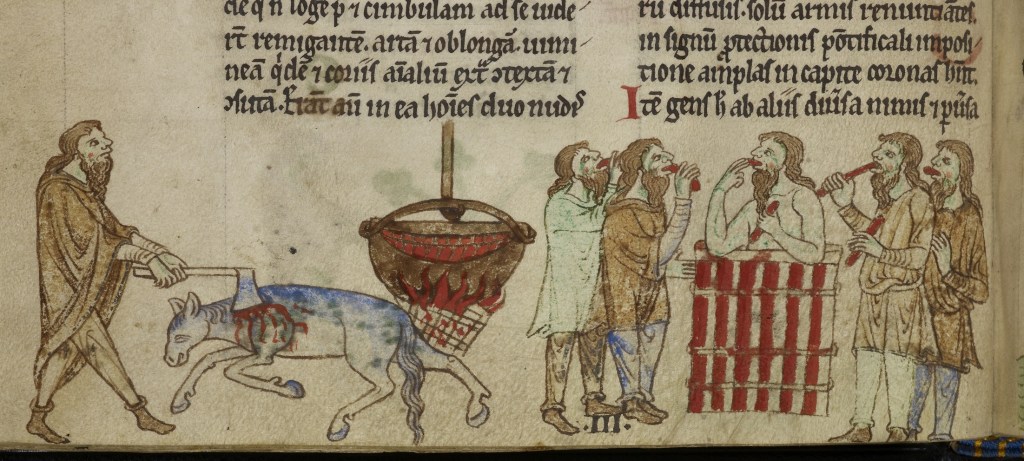 n̄ loge p̄ ⁊ cimbulam ad se uide-
rt̄ remigantē. artā ⁊ oblongā. uimi-
neā q̇dē ⁊ coriis aīaliū ext̃ ↄtextā ⁊
ↄsutā. Erāt aū in ea hoīes duo nudis
diffusis. solū armis renuntiātes.
in signū ꝓtectionis pōtificali imposi-
tione amplas in capite coronas hn̄t.
Itē gens h̄ ab aliis diūsa nimis ⁊ ꝑūsa
.III.